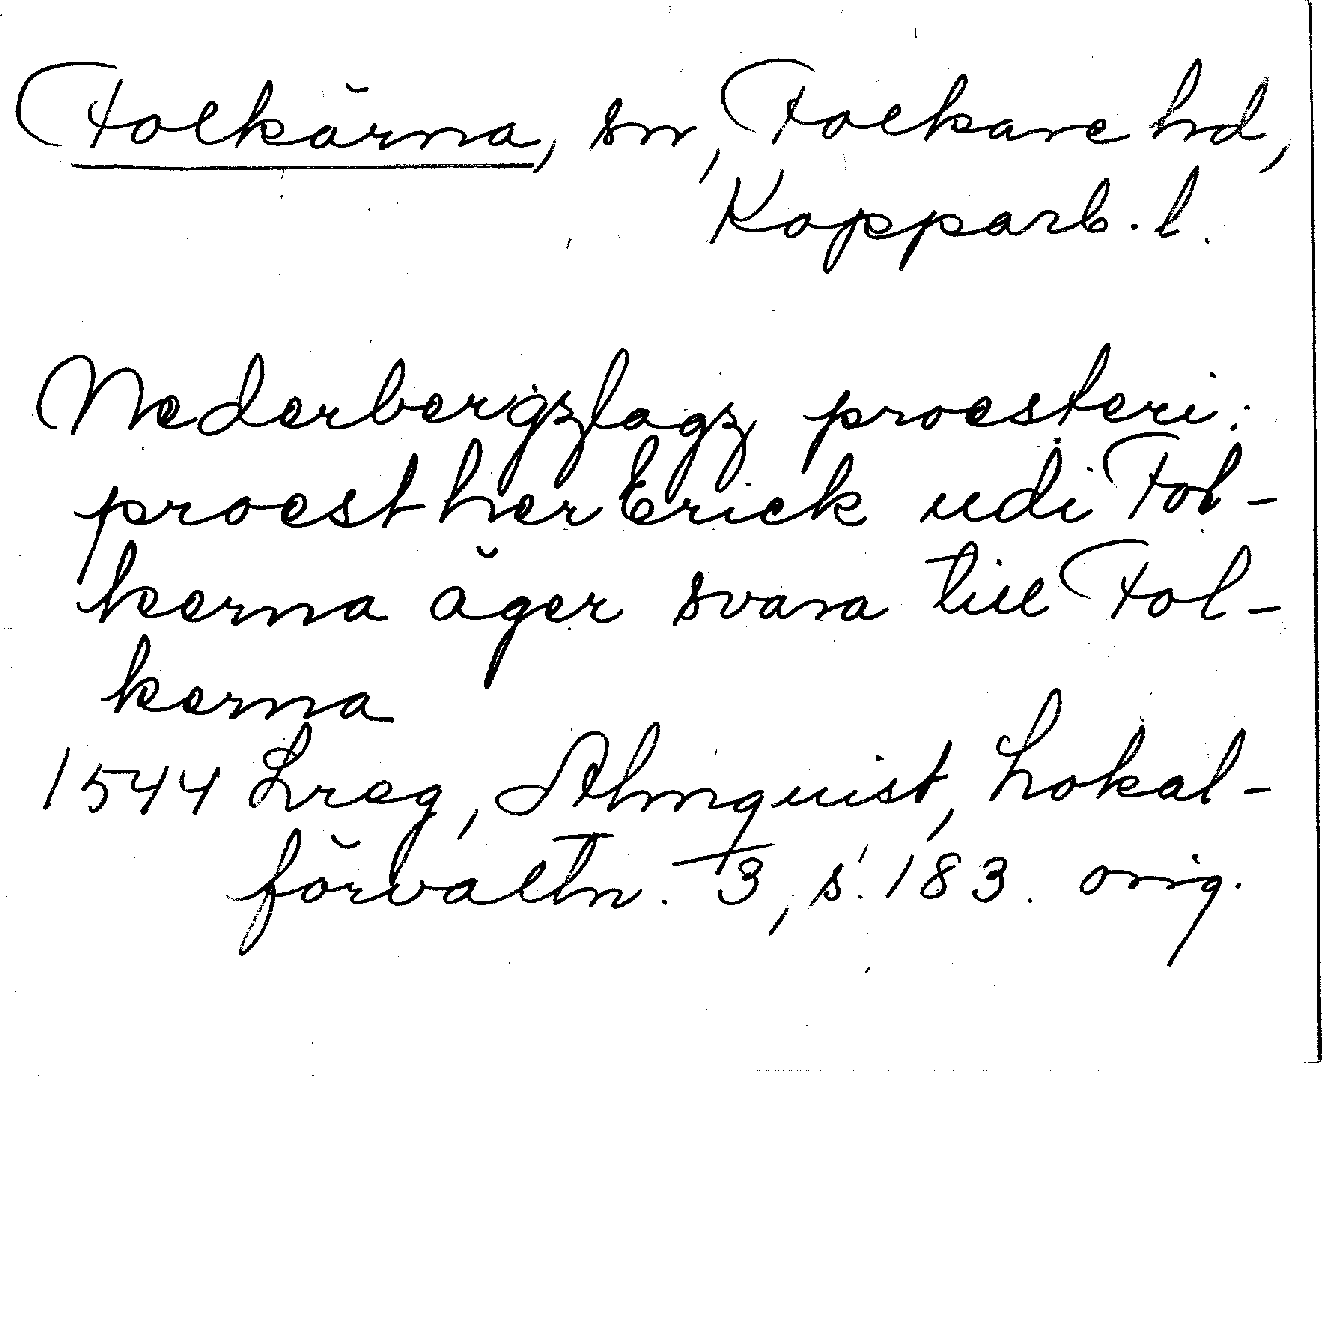 Folkärna, sn, Folkare hd,
Kopparb. l.
Nederbergzlagz proesteri:
proest her Erick udi Fol-
kerna äger svara till Fol-
kerna
1544 Lreg, Almquist, Lokal-
förvaltn. 3, s. 183. orig.